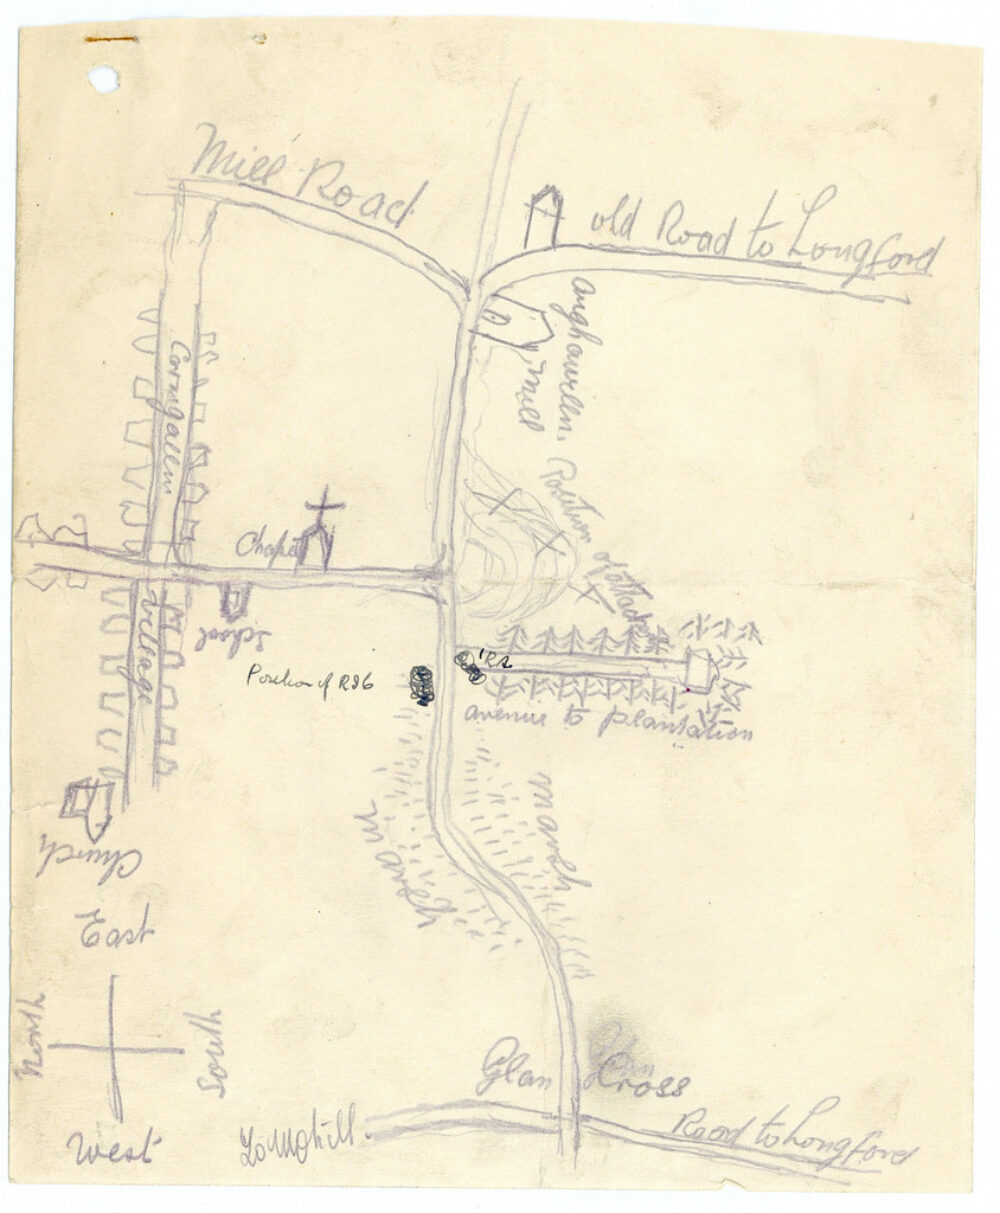 Mill Road
old Road to Longford
Aughavillen.
Mill
Corngallen
Position of attack
Chapel
School
Village
'RS
Position of RSG
avenue to plantation
marsh
marsh
Church
East
North
South
West
Glan Cross
Road to Longford